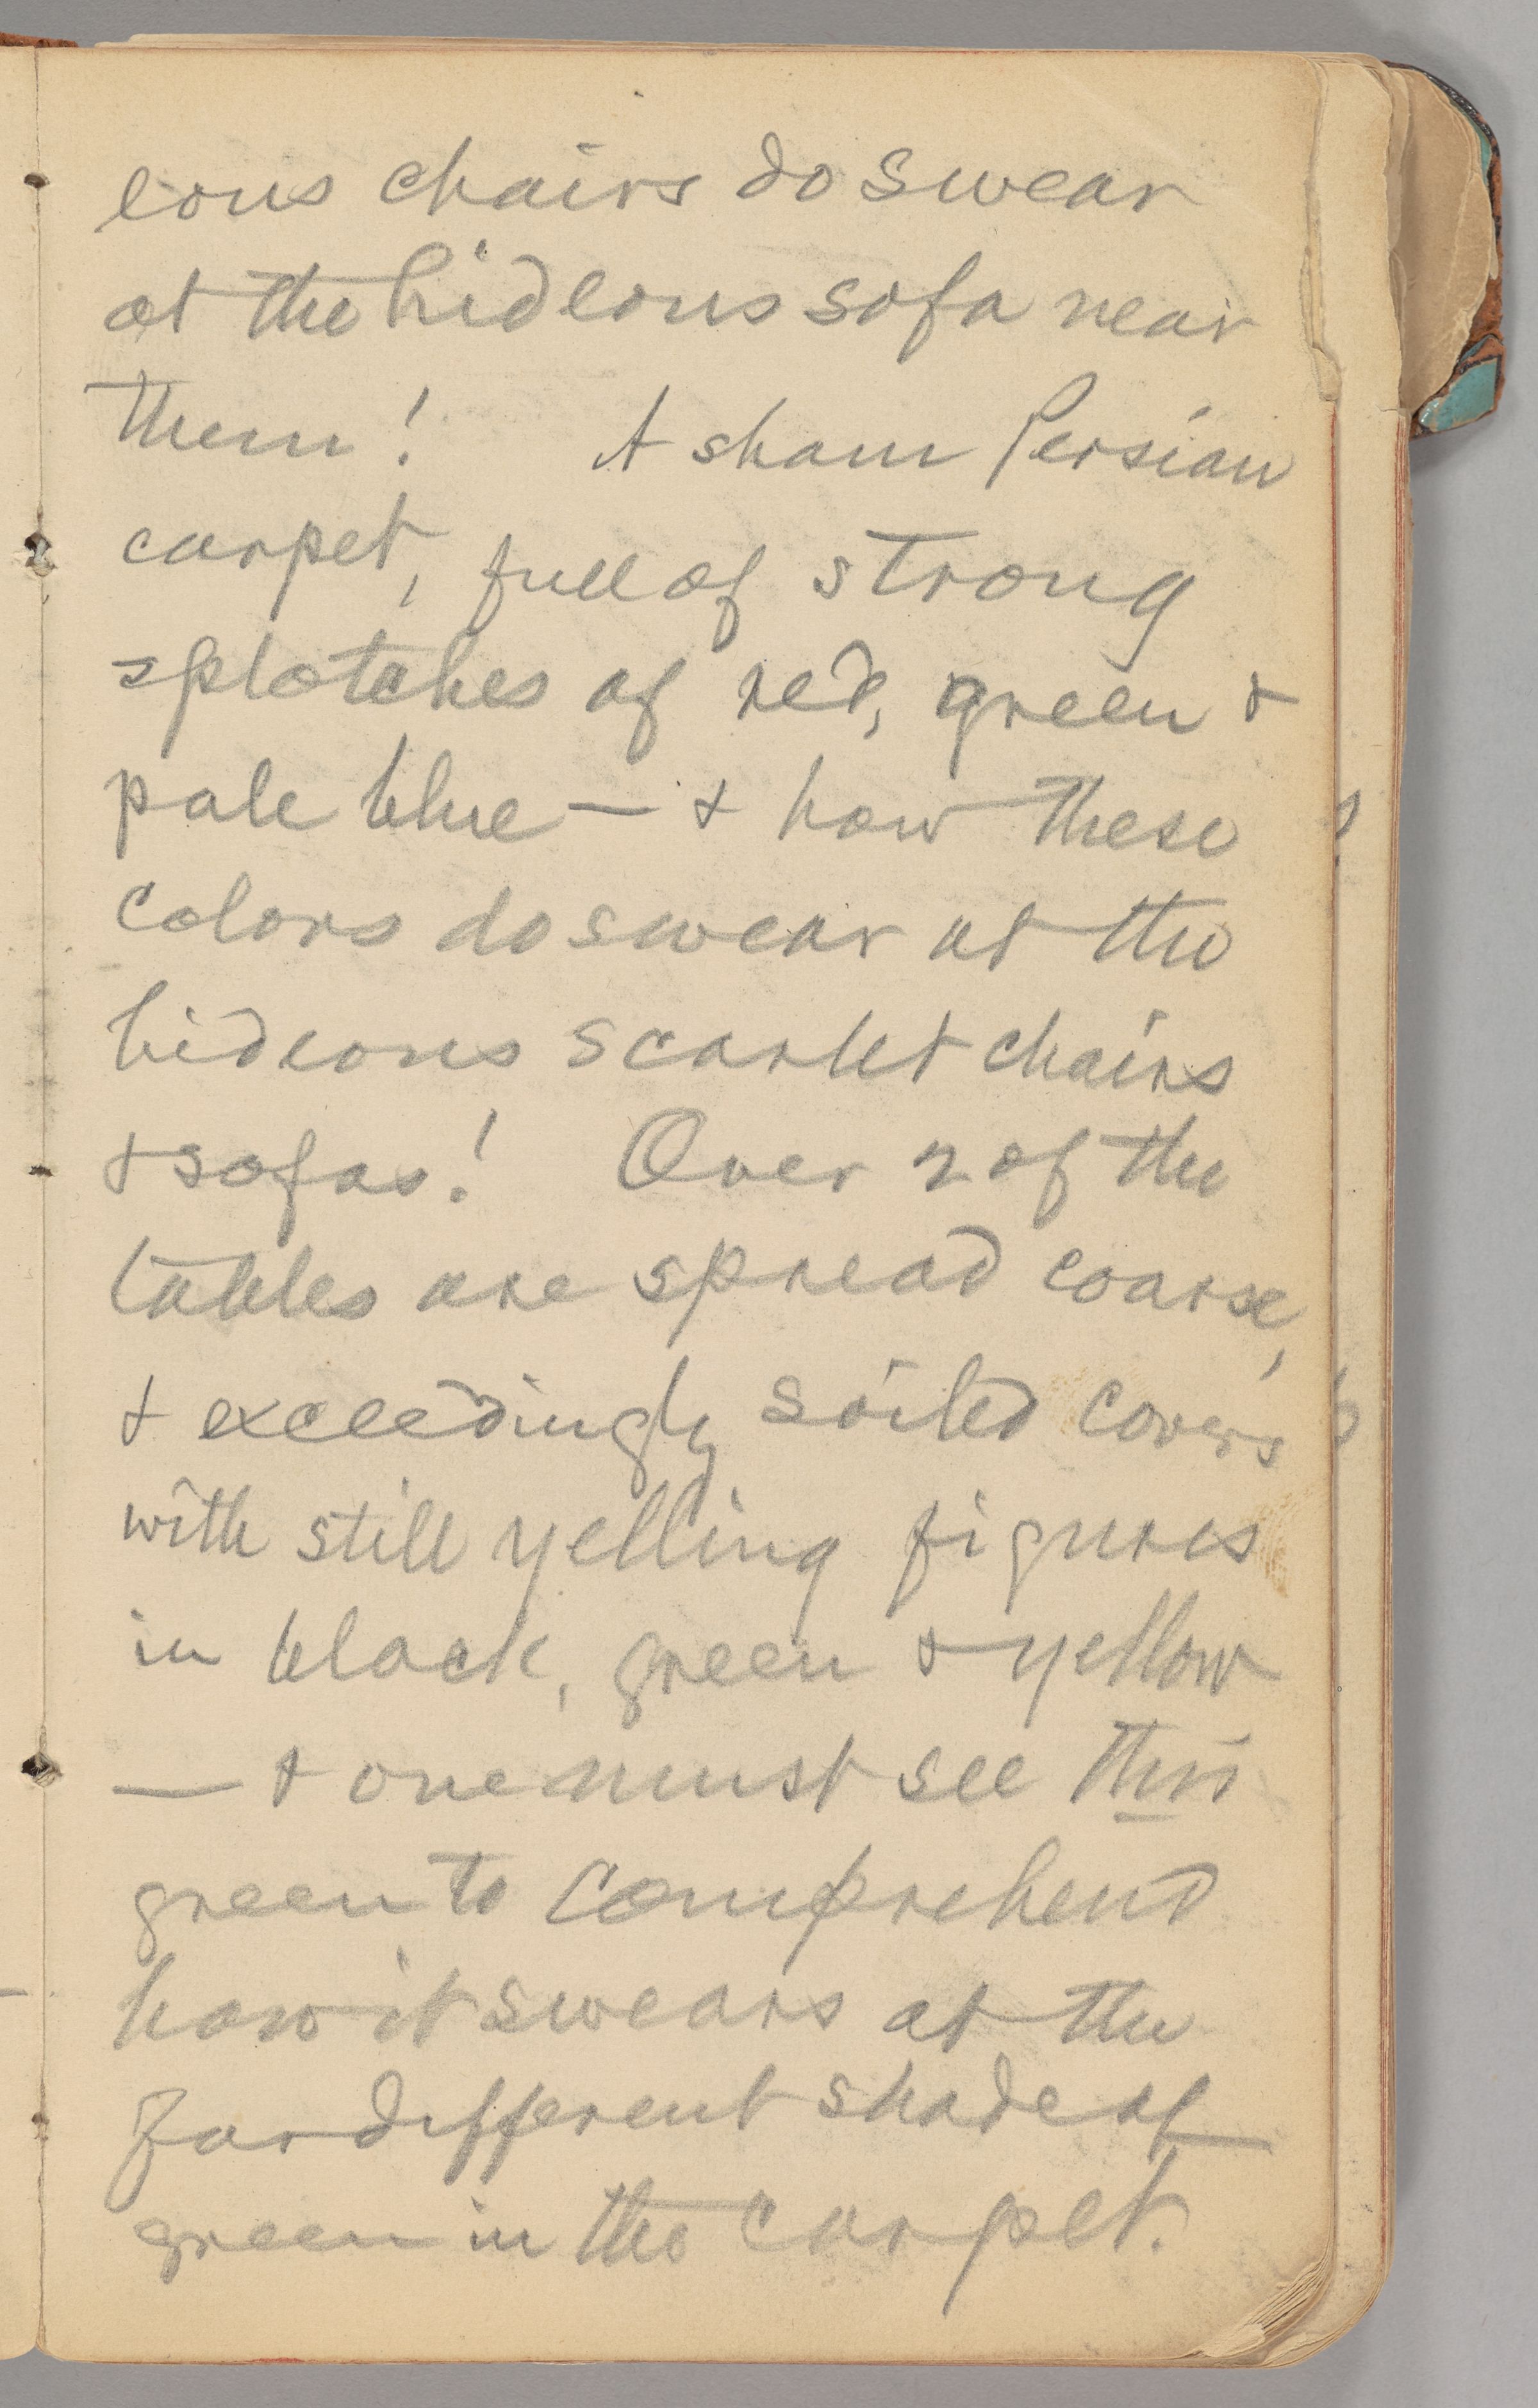 eous chairs do swear
at the hideous sofa near
them! A sham Persian
carpet, full of strong
splotches of red, green &
pale blue — & how these
colors do swear at the
hideous scarlet chairs
& sofas! Over 2 of the
tables are spread coarse,
& exceedingly soiled covers
with still yelling figures
in black, green & yellow
— & one must see this
green to comprehend
how it swears at the
far different shade of
green in the carpet.